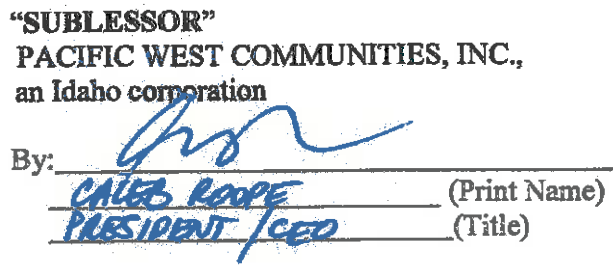 “SUBLESSOR”
PACIFIC WEST COMMUNITIES, INC.,
an Idaho corporation
By:
CALEB ROOPE (Print Name)
PRESIDENT / CEO (Title)